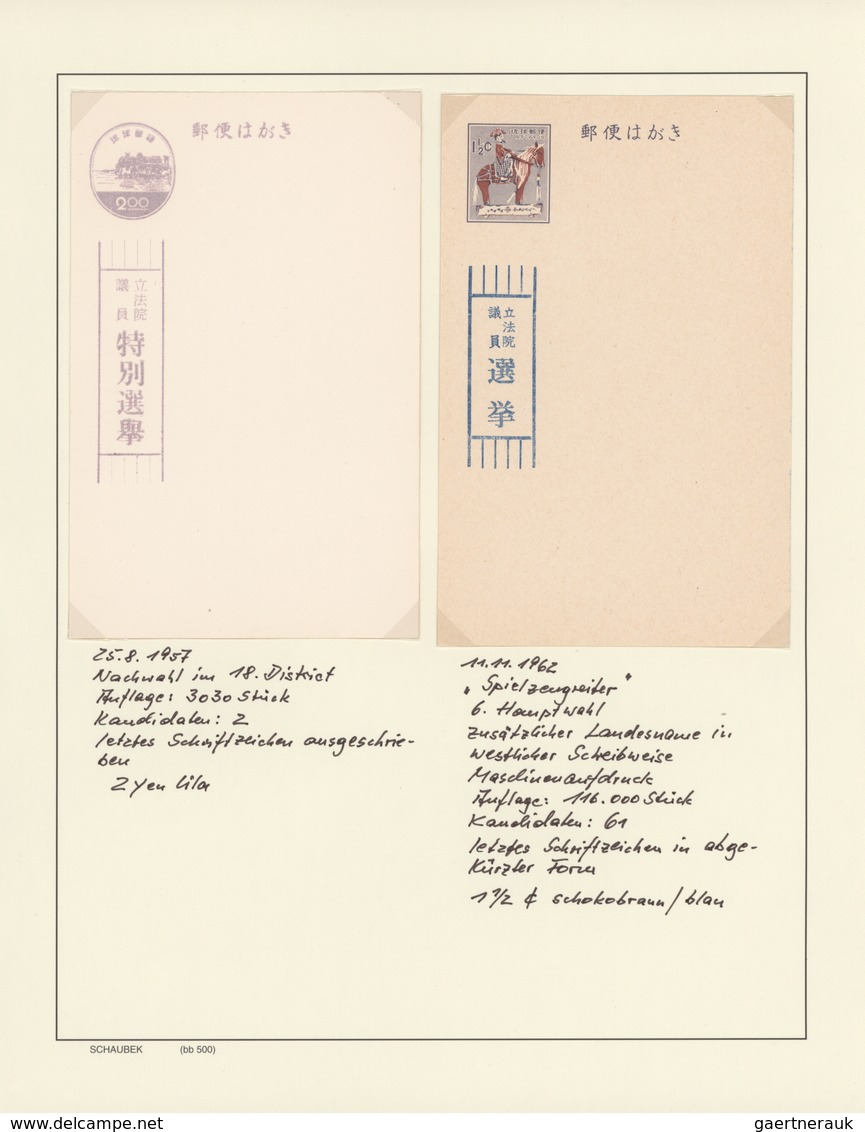 琉球郵便
2.00
郵便はがき
立法院
議員
特別選擧
25.8.1957
Nachwahl im 18. District
Auflage: 3030 Stück
Kandidaten: 2
letztes Schriftzeichen ausgeschrie-
ben
2 Yen lila
琉球郵便
1½c
郵便はがき
立法院
議員
選挙
11.11.1962
"Spielzeugreiter"
6. Hauptwahl
zusätzlicher Landesname in
westlicher Schreibweise
Maschinenaufdruck
Auflage: 116.000 Stück
Kandidaten: 61
letztes Schriftzeichen in abge-
kürzter Form
1 1/2 ¢ schokobraun/blau
SCHAUBEK (bb 500)
www.delcampe.net
gaertnerauk